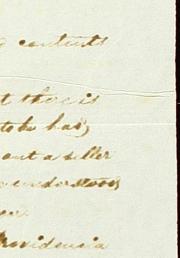 contents
t there is
to be had,
out a seller
understood,
Providencia